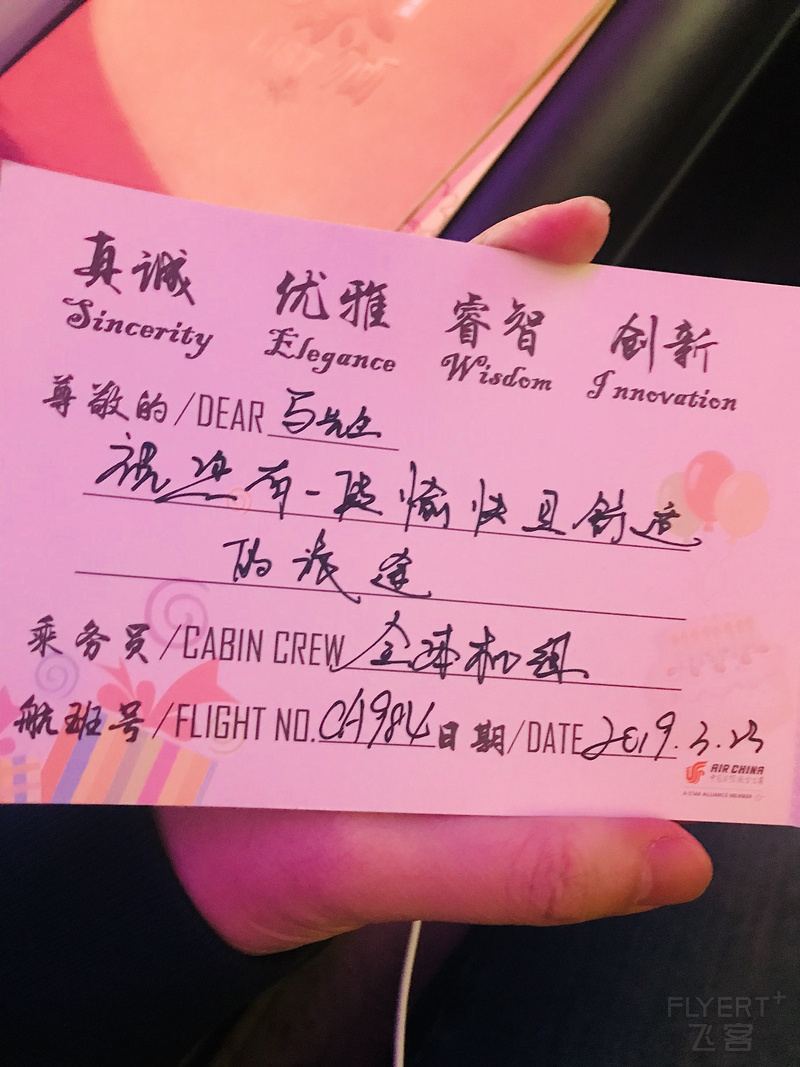 真诚 优雅 睿智 创新
Sincerity Elegance Wisdom Innovation
尊敬的/DEAR 马先生
祝您有一段愉快且舒适
的旅途
乘务员/CABIN CREW 全体机组
航班号/FLIGHT NO. CA984 日期/DATE 2019.3.23
AIR CHINA
中国国际航空公司
A STAR ALLIANCE MEMBER
FLYERT+
飞客